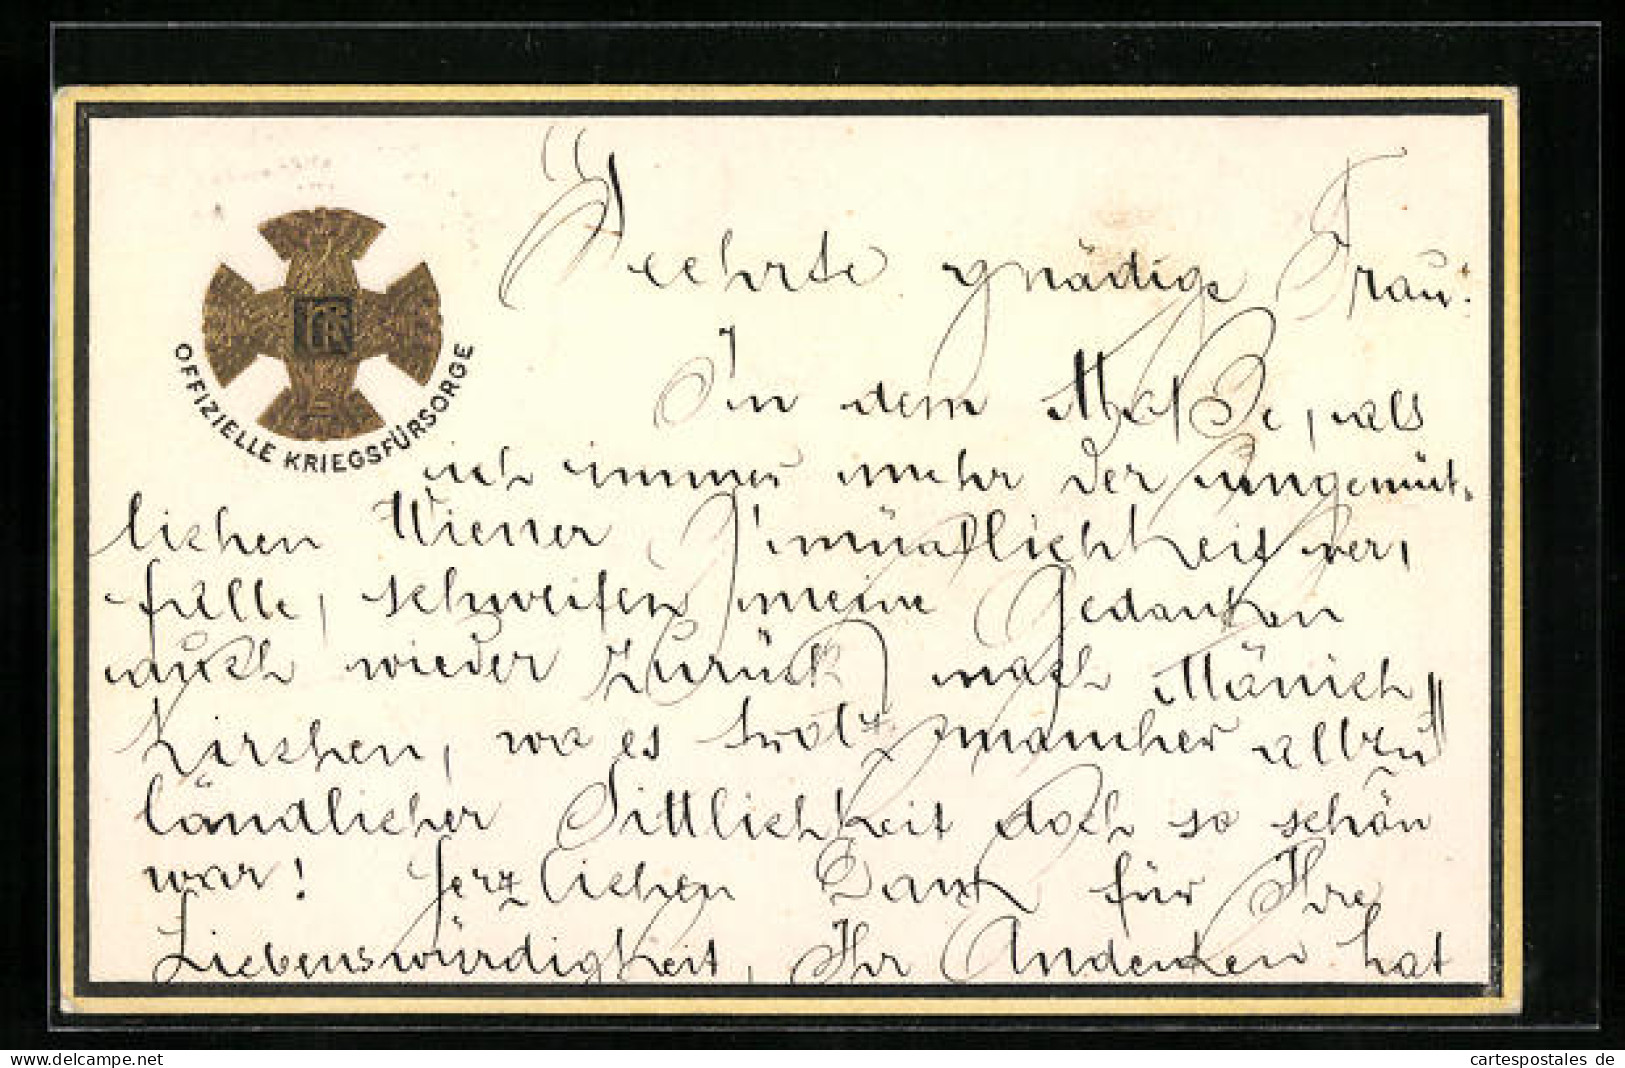 OFFIZIELLE KRIEGSFÜRSORGE
Geehrte gnädige Frau!
In dem Maße, als
ich immer mehr der ungemüt-
lichen Wiener Gemütlichkeit ver-
falle, schweifen meine Gedanken
auch wieder zurück nach Mönich
Kirchen, wo es trotz mancher allzu
ländlicher Sittlichkeit doch so schön
war! Herzlichen Dank für Ihre
Liebenswürdigkeit, Ihr Andenken hat
cartespostales.de
www.cartespostales.de